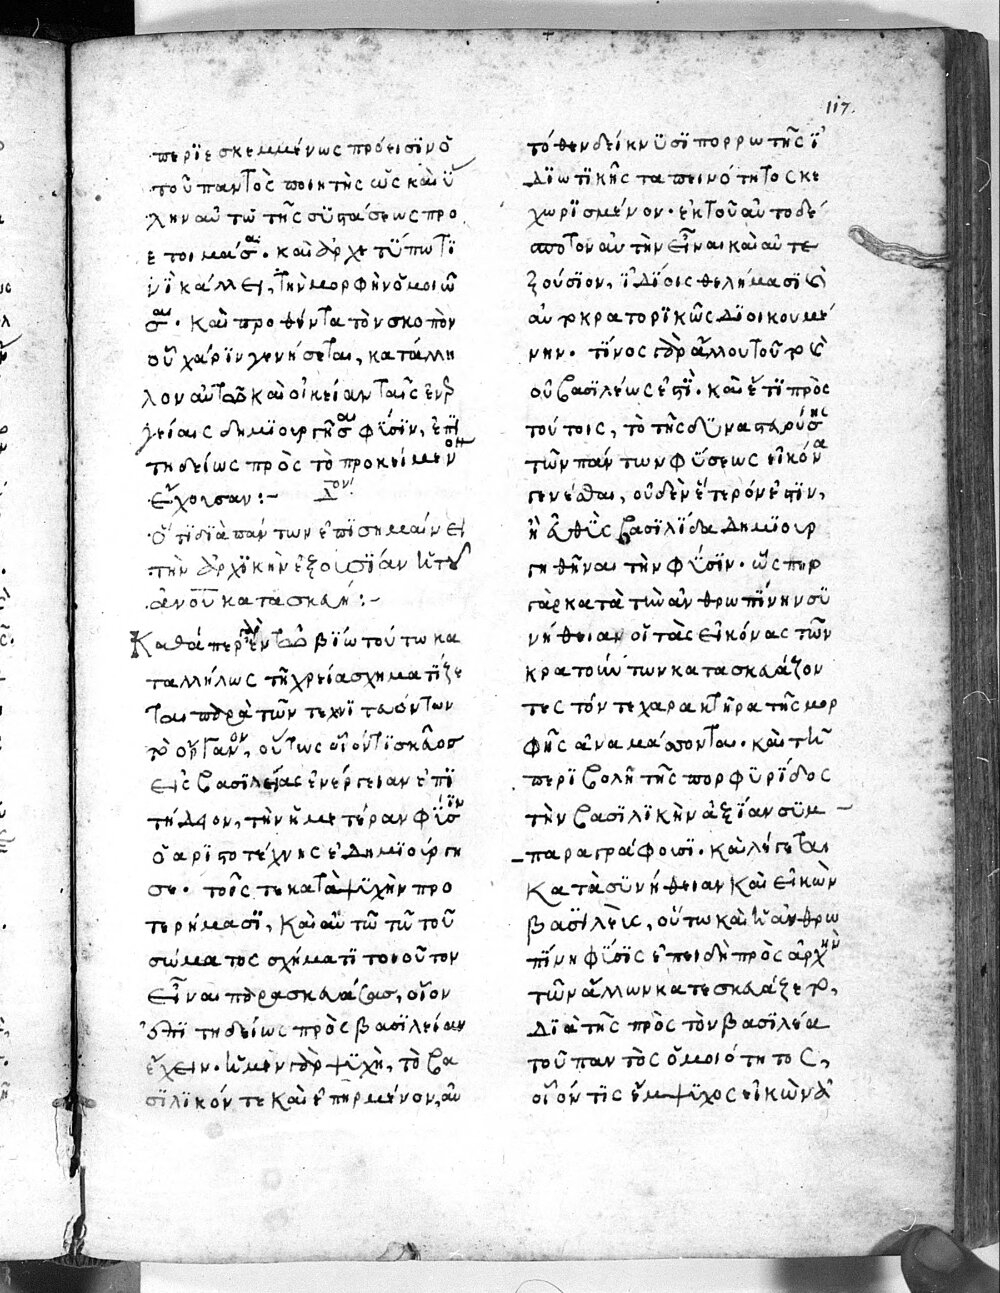 117.
περιεσκεμμένως πρόεισιν ὁ
τοῦ παντὸς ποιητὴς ὡς καὶ ὕ
λην αὐτῶ τῆς συστάσεως προ
ετοιμάσαι. καὶ ἀρχετύπω τι
νὶ κάλλει, τὴν μορφὴν ὁμοιῶ
σαι. καὶ προθέντα τὸν σκοπὸν
οὗ χάριν γενήσεται, κατάλλη
λον αὐτῶ καὶ οἰκείαν ταῖς ἐνερ
γείαις δημιουργῆσαι φύσιν, ἐπι
τηδείως πρὸς τὸ προκείμενον
ἔχουσαν:-
Δον
Ὅτι διὰ πάντων ἐπισημαίνει
τὴν ἀρχικὴν ἐξουσίαν ἡ τοῦ
ἀνου κατασκευή:-
Καθάπερ δὲ ἐν τῶ βίω τούτω κα
ταλλήλως τῆ χρεία σχηματίζε
ται παρὰ τῶν τεχνιτευόντων
τὸ ὄργανον, οὕτως οἷόν τι σκεῦος
εἰς βασιλείας ἐνέργειαν ἐπι
τήδειον, τὴν ἡμετέραν φύσιν
ὁ ἀριστοτέχνης ἐδημιούργη
σε. τοῖς τε κατὰ ψυχὴν προ
τερήμασι, καὶ αὐτῶ τῶ τοῦ
σώματος σχήματι τοιοῦτον
εἶναι παρασκευάσας, οἷον
ἐπιτηδείως πρὸς βασιλείαν
ἔχειν. ἡ μὲν γὰρ ψυχὴ, τὸ βα
σιλικόν τε καὶ ἐπηρμένον, αὐ
τόθεν δείκνυσι πόρρω τῆς ἰ
διωτικῆς ταπεινότητος κε
χωρισμένον. ἐκ τοῦ αὐτοδέ
σποτον αὐτὴν εἶναι καὶ αὐτε
ξούσιον, ἰδίοις θελήμασιν
αὐτοκρατορικῶς διοικουμέ
νην. τίνος γὰρ ἄλλου τοῦτο καὶ
οὐ βασιλέως ἐστὶ. καὶ ἔτι πρὸς
τούτοις, τὸ τῆς δυναστευούσης
τῶν πάντων φύσεως εἰκόνα
γενέσθαι, οὐδὲν ἕτερόν ἐστιν,
ἢ εὐθὺς βασιλίδα δημιουρ
γηθῆναι τὴν φύσιν. ὥσπερ
γὰρ κατὰ τὴν ἀνθρωπίνην συ
νήθειαν οἱ τὰς εἰκόνας τῶν
κρατούντων κατασκευάζον
τες τόν τε χαρακτῆρα τῆς μορ
φῆς ἀναμάσσονται. καὶ τῆ
περιβολῆ τῆς πορφυρίδος
τὴν βασιλικὴν ἀξίαν συμ
παραγράφουσι. καὶ λέγεται
κατὰ συνήθειαν καὶ εἰκὼν
βασιλεὺς, οὕτω καὶ ἡ ἀνθρω
πίνη φύσις ἐπειδὴ πρὸς ἀρχὴν
τῶν ἄλλων κατεσκευάζετο,
διὰ τῆς πρὸς τὸν βασιλέα
τοῦ παντὸς ὁμοιότητος,
οἷόν τις ἔμψυχος εἰκὼν ἀ